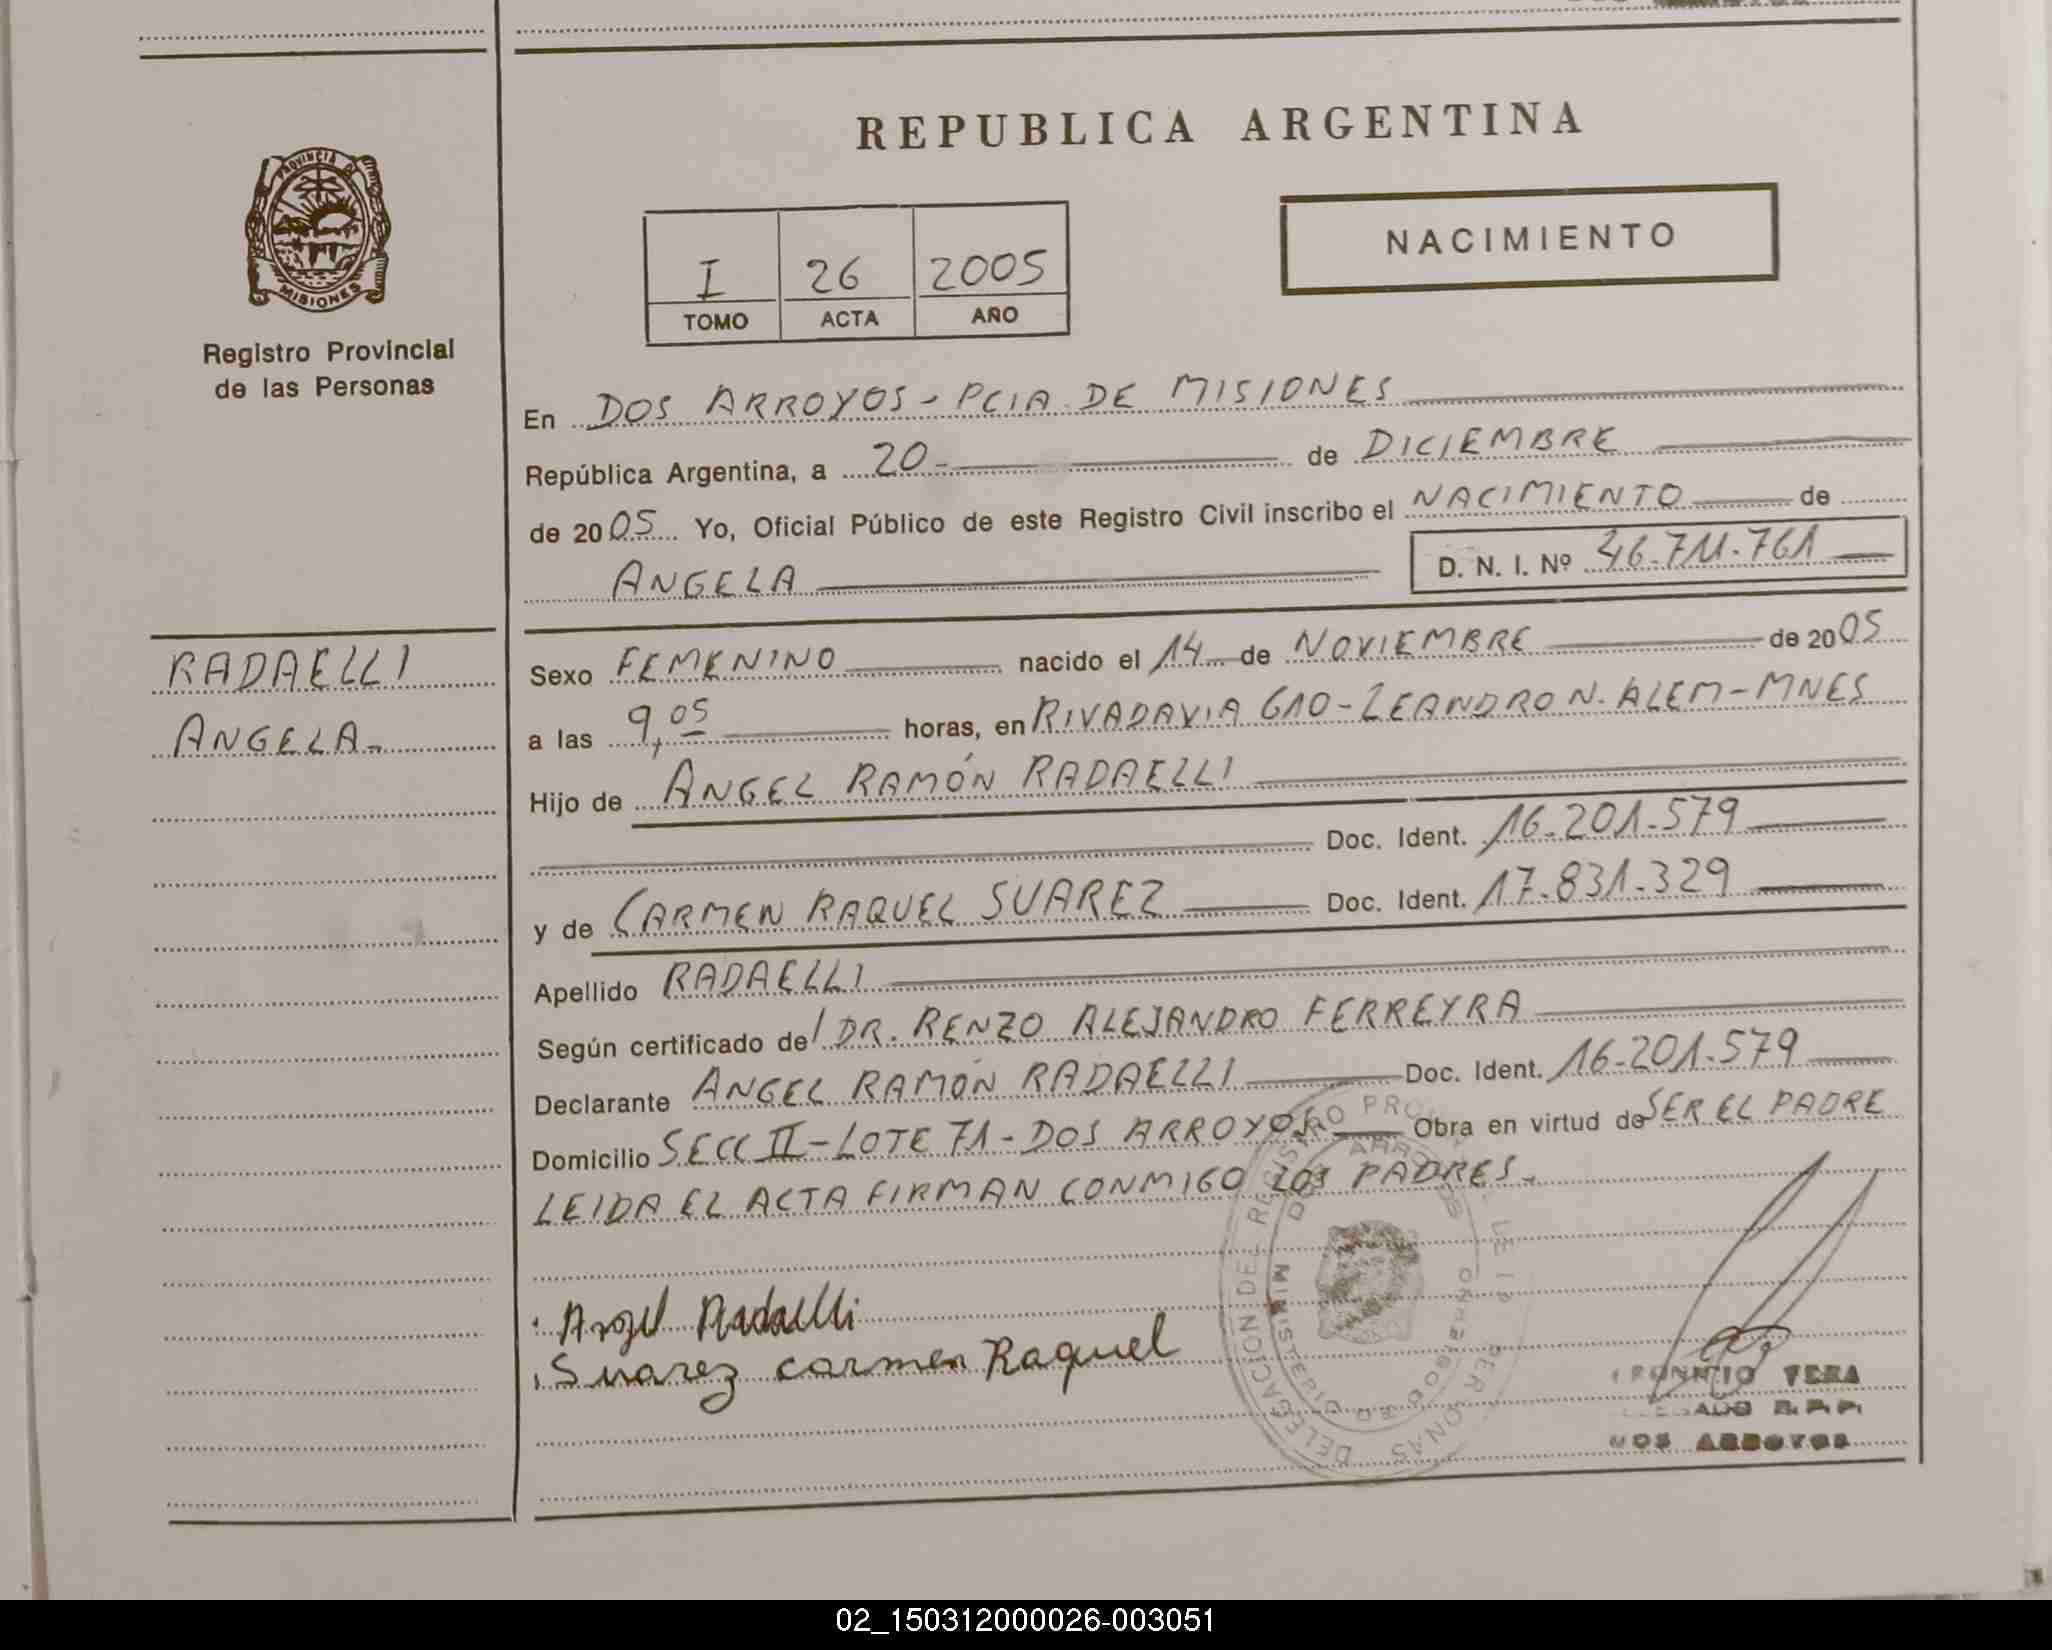 REPUBLICA ARGENTINA
PROVINCIA DE
MISIONES
Registro Provincial
de las Personas
I 26 2005
TOMO ACTA AÑO
NACIMIENTO
En DOS ARROYOS - PCIA DE MISIONES
República Argentina, a 20- de DICIEMBRE
de 2005 Yo, Oficial Público de este Registro Civil inscribo el NACIMIENTO de
ANGELA D. N. I. Nº 46.711.761
RADAELLI
ANGELA.-
Sexo FEMENINO nacido el 14 de NOVIEMBRE de 2005
a las 9,05 horas, en RIVADAVIA 610 - LEANDRO N. ALEM - MNES
Hijo de ANGEL RAMÓN RADAELLI
Doc. Ident. 16.201.579
y de CARMEN RAQUEL SUAREZ Doc. Ident. 17.831.329
Apellido RADAELLI
Según certificado de / DR. RENZO ALEJANDRO FERREYRA
Declarante ANGEL RAMÓN RADAELLI Doc. Ident. 16.201.579
Domicilio SECC II - LOTE 71 - DOS ARROYOS Obra en virtud de SER EL PADRE
LEIDA EL ACTA FIRMAN CONMIGO LOS PADRES.-
Angel Radaelli
Suarez Carmen Raquel
DELEGACION DEL REGISTRO
MINISTERIO DE GOBIERNO
VERA
DOS ARROYOS
02_150312000026-003051